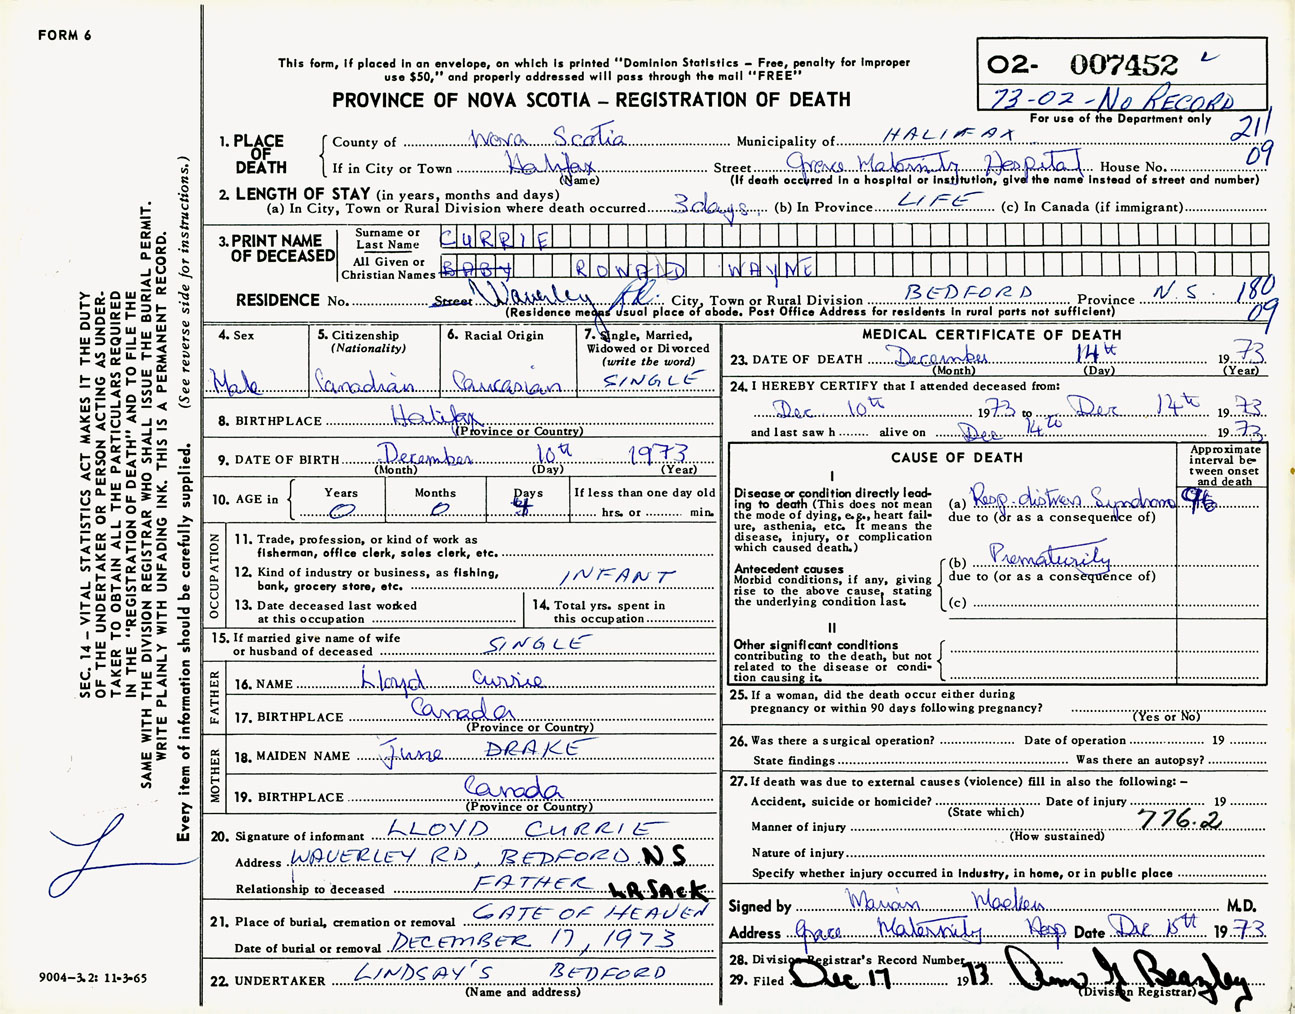 FORM 6
This form, if placed in an envelope, on which is printed "Dominion Statistics – Free, penalty for improper
use $50," and properly addressed will pass through the mail "FREE"
PROVINCE OF NOVA SCOTIA – REGISTRATION OF DEATH
02- 007452
73-02-No RECORD
For use of the Department only
211
09
1. PLACE OF DEATH
County of Nova Scotia Municipality of HALIFAX
If in City or Town Halifax Street Grace Maternity Hospital House No.
(Name) (If death occurred in a hospital or institution, give the name instead of street and number)
2. LENGTH OF STAY (in years, months and days)
(a) In City, Town or Rural Division where death occurred 3 days (b) In Province LIFE (c) In Canada (if immigrant)
3. PRINT NAME OF DECEASED
Surname or Last Name CURRIE
All Given or Christian Names BABY RONALD WAYNE
RESIDENCE No. Street Waverley Rd. City, Town or Rural Division BEDFORD Province N.S. 180
09
(Residence means usual place of abode. Post Office Address for residents in rural parts not sufficient)
4. Sex Male
5. Citizenship (Nationality) Canadian
6. Racial Origin Caucasian
7. Single, Married, Widowed or Divorced (write the word) SINGLE
8. BIRTHPLACE Halifax
(Province or Country)
9. DATE OF BIRTH December 10th 1973
(Month) (Day) (Year)
10. AGE in Years 0 Months 0 Days 4 If less than one day old
hrs. or min.
OCCUPATION
11. Trade, profession, or kind of work as
fisherman, office clerk, sales clerk, etc.
12. Kind of industry or business, as fishing,
bank, grocery store, etc. INFANT
13. Date deceased last worked
at this occupation
14. Total yrs. spent in
this occupation
15. If married give name of wife
or husband of deceased SINGLE
FATHER
16. NAME Lloyd Currie
17. BIRTHPLACE Canada
(Province or Country)
MOTHER
18. MAIDEN NAME June DRAKE
19. BIRTHPLACE Canada
(Province or Country)
20. Signature of informant LLOYD CURRIE
Address WAVERLEY RD, BEDFORD NS
Relationship to deceased FATHER LR SACK
21. Place of burial, cremation or removal GATE OF HEAVEN
Date of burial or removal DECEMBER 17, 1973
22. UNDERTAKER LINDSAY'S BEDFORD
(Name and address)
MEDICAL CERTIFICATE OF DEATH
23. DATE OF DEATH December 14th 1973
(Month) (Day) (Year)
24. I HEREBY CERTIFY that I attended deceased from:
Dec 10th 1973 to Dec 14th 1973
and last saw h alive on Dec 14th 1973
CAUSE OF DEATH
Approximate interval between onset and death
I
Disease or condition directly lead-
ing to death (This does not mean
the mode of dying, e.g., heart fail-
ure, asthenia, etc. It means the
disease, injury, or complication
which caused death.)
(a) Resp. distress Syndrome
due to (or as a consequence of)
Antecedent causes
Morbid conditions, if any, giving
rise to the above cause, stating
the underlying condition last.
(b) Prematurity
due to (or as a consequence of)
(c)
II
Other significant conditions
contributing to the death, but not
related to the disease or condi-
tion causing it.
25. If a woman, did the death occur either during
pregnancy or within 90 days following pregnancy?
(Yes or No)
26. Was there a surgical operation? Date of operation 19
State findings Was there an autopsy?
27. If death was due to external causes (violence) fill in also the following: –
Accident, suicide or homicide? Date of injury 19
(State which)
Manner of injury 776.2
(How sustained)
Nature of injury
Specify whether injury occurred in industry, in home, or in public place
Signed by Marian M.D.
Address Grace Maternity Hosp Date Dec 15th 1973
28. Division Registrar's Record Number
29. Filed Dec 17 1973 Ann Beazley
(Division Registrar)
SEC. 14 – VITAL STATISTICS ACT MAKES IT THE DUTY
OF THE UNDERTAKER OR PERSON ACTING AS UNDER-
TAKER TO OBTAIN ALL THE PARTICULARS REQUIRED
IN THE "REGISTRATION OF DEATH" AND TO FILE THE
SAME WITH THE DIVISION REGISTRAR WHO SHALL ISSUE THE BURIAL PERMIT.
WRITE PLAINLY WITH UNFADING INK. THIS IS A PERMANENT RECORD.
Every item of information should be carefully supplied. (See reverse side for instructions.)
9004-3.2: 11-3-65